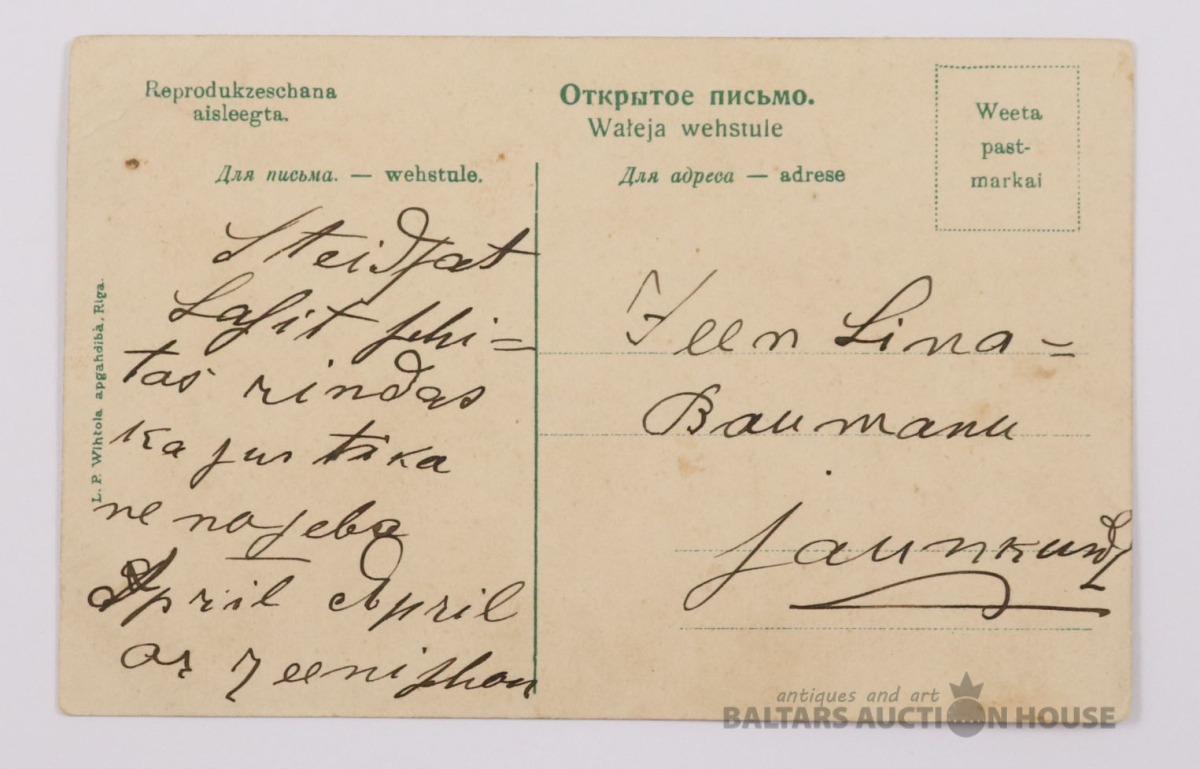 Reprodukzeschana
aisleegta.
Открытое письмо.
Wałeja wehstule
Weeta
past-
markai
Для письма. — wehstule.
Для адреса — adrese
L. P. Wihtola apgahdibà, Riga.
Steidsat
Lasit schi=
tas rindas
ka jus tika
ne
April April
ar zeenischon
Zeen Lina=
Baumanu
jaunkundz
antiques and art
BALTARS AUCTION HOUSE